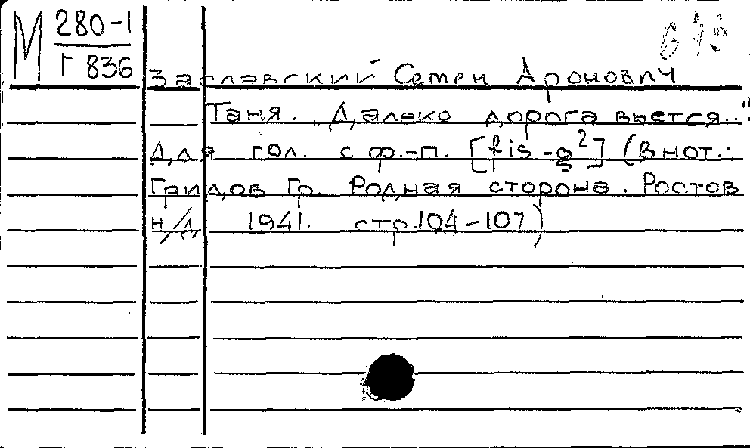 М 280-1
Г 836
Заславский Семен Аронович
Таня. „Далеко дорога вьется..."
Для гол. с ф.-п. [fis-g²] (В нот.:
Гридов Гр. Родная сторона. Ростов
н/Д 1941. стр.104-107)